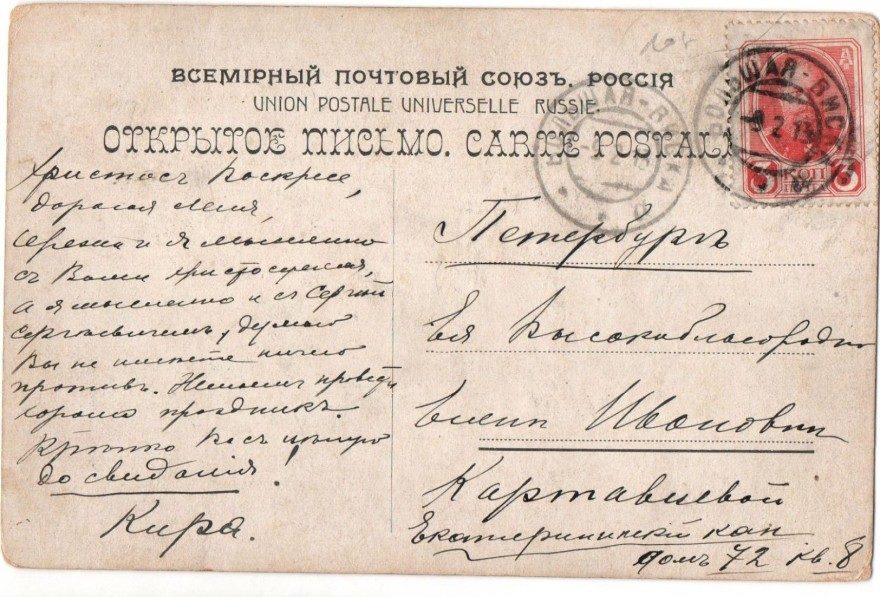 ВСЕМІРНЫЙ ПОЧТОВЫЙ СОЮЗЪ. РОССІЯ
UNION POSTALE UNIVERSELLE RUSSIE.
ОТКРЫТОЕ ПИСЬМО. CARTE POSTALE
Христосъ Воскресе,
дорогая
Сережа и я мысленно
съ Вами христосуемся,
а я мысленно и съ Сергѣй
Сергѣевичемъ, думаю
Вы не имѣете ничего
противъ. Желаемъ провести
хорошо праздникъ.
Крѣпко Васъ цѣлую
до свиданія!
Кира.
Петербургъ
Ея Высокоблагородію
Еленѣ Ивановнѣ
Картавцевой
Екатерининскій кан
домъ 72 кв. 8
3 КОП 3